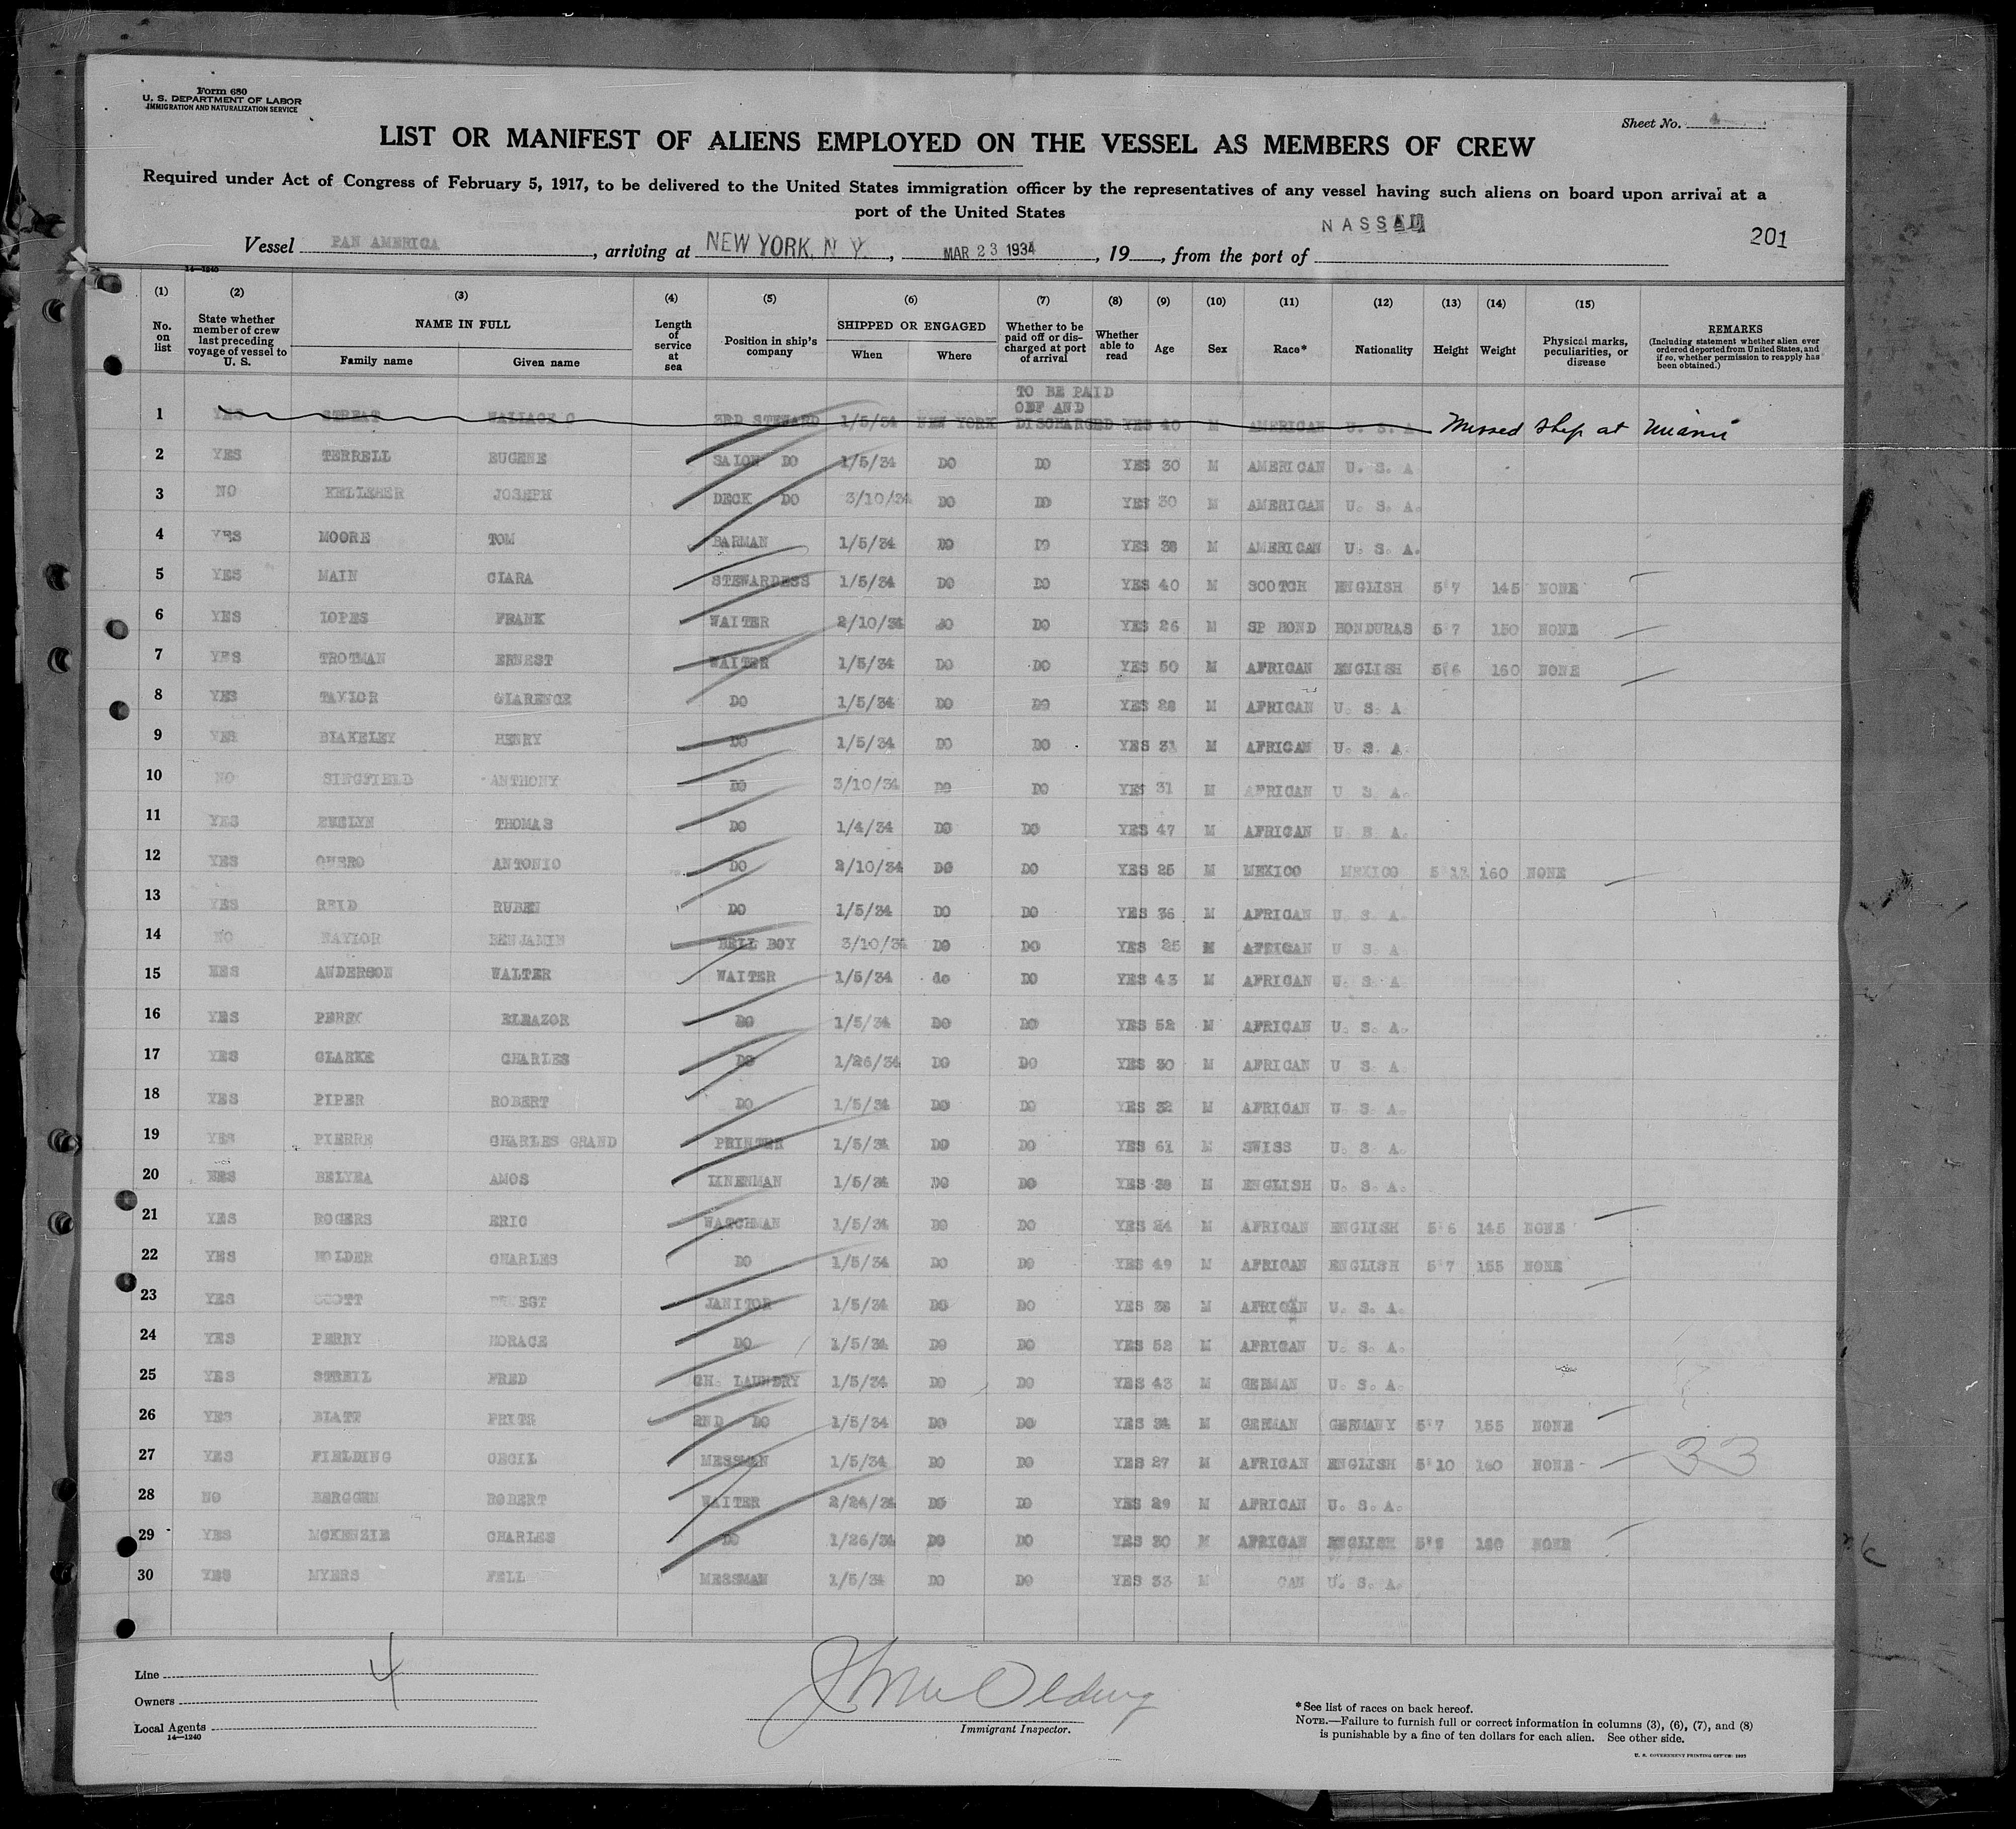 Form 680
U. S. DEPARTMENT OF LABOR
IMMIGRATION AND NATURALIZATION SERVICE
Sheet No. 4
LIST OR MANIFEST OF ALIENS EMPLOYED ON THE VESSEL AS MEMBERS OF CREW
Required under Act of Congress of February 5, 1917, to be delivered to the United States immigration officer by the representatives of any vessel having such aliens on board upon arrival at a
port of the United States
Vessel PAN AMERICA, arriving at NEW YORK, N. Y., MAR 23 1934, 19, from the port of NASSAU
201
14—1240
(1) (2) (3) (4) (5) (6) (7) (8) (9) (10) (11) (12) (13) (14) (15)
No. on list
State whether member of crew last preceding voyage of vessel to U. S.
NAME IN FULL
Family name Given name
Length of service at sea
Position in ship's company
SHIPPED OR ENGAGED
When Where
Whether to be paid off or discharged at port of arrival
Whether able to read
Age
Sex
Race*
Nationality
Height
Weight
Physical marks, peculiarities, or disease
REMARKS
(Including statement whether alien ever ordered deported from United States, and if so, whether permission to reapply has been obtained.)
TO BE PAID
OFF AND
1 YES STREAT WALLACE C 3RD STEWARD 1/5/34 NEW YORK DISCHARGED YES 40 M AMERICAN U. S. A Missed ship at Miami
2 YES TERRELL EUGENE SALON DO 1/5/34 DO DO YES 30 M AMERICAN U. S. A
3 NO KELLEHER JOSEPH DECK DO 3/10/34 DO DO YES 30 M AMERICAN U. S. A.
4 YES MOORE TOM BARMAN 1/5/34 DO DO YES 38 M AMERICAN U. S. A.
5 YES MAIN CIARA STEWARDESS 1/5/34 DO DO YES 40 M SCOTCH ENGLISH 5'7 145 NONE
6 YES IOPES FRANK WAITER 2/10/34 do DO YES 26 M SP HOND HONDURAS 5'7 150 NONE
7 YES TROTMAN ERNEST WAITER 1/5/34 DO DO YES 50 M AFRICAN ENGLISH 5'6 160 NONE
8 YES TAYIOR CIARENCE DO 1/5/34 DO DO YES 28 M AFRICAN U. S. A.
9 YES BIAKELEY HENRY DO 1/5/34 DO DO YES 31 M AFRICAN U. S. A.
10 NO SINGFIELD ANTHONY DO 3/10/34 DO DO YES 31 M AFRICAN U S. A.
11 YES THOMAS DO 1/4/34 DO DO YES 47 M AFRICAN U. S. A.
12 YES ANTONIO DO 2/10/34 DO DO YES 25 M MEXICO MEXICO 160 NONE
13 YES REID RUBEN DO 1/5/34 DO DO YES 36 M AFRICAN U. S. A.
14 NO NAYIOR BENJAMIN BELL BOY 3/10/34 DO DO YES 25 M AFRICAN U S. A.
15 YES ANDERSON WALTER WAITER 1/5/34 do DO YES 43 M AFRICAN U. S. A
16 YES PEREY ELEAZOR DO 1/5/34 DO DO YES 52 M AFRICAN U. S. A.
17 YES CLARKE CHARLES DO 1/26/34 DO DO YES 30 M AFRICAN U S. A
18 YES PIPER ROBERT DO 1/5/34 DO DO YES 32 M AFRICAN U. S. A.
19 YES PIERRE CHARLES GRAND PRINTER 1/5/34 DO DO YES 61 M SWISS U. S. A.
20 YES BELYEA AMOS LINENMAN 1/5/34 DO DO YES 38 M ENGLISH U. S. A.
21 YES ROGERS ERIC WATCHMAN 1/5/34 DO DO YES 24 M AFRICAN ENGLISH 5'6 145 NONE
22 YES HOLDER CHARLES DO 1/5/34 DO DO YES 49 M AFRICAN ENGLISH 5'7 155 NONE
23 YES SCOTT JANITOR 1/5/34 DO DO YES 38 M AFRICAN U. S. A.
24 YES PERRY HORACE DO 1/5/34 DO DO YES 52 M AFRICAN U. S. A.
25 YES STREIL FRED CH. LAUNDRY 1/5/34 DO DO YES 43 M GERMAN U. S. A.
26 YES BIATT FRITS 2ND DO 1/5/34 DO DO YES 34 M GERMAN GERMANY 5'7 155 NONE
27 YES FIELDING CECIL MESSMAN 1/5/34 DO DO YES 27 M AFRICAN ENGLISH 5'10 160 NONE 33
28 NO BERGGEN ROBERT WAITER 2/24/34 DO DO YES 29 M AFRICAN U. S. A.
29 YES MCKENZIE CHARLES DO 1/26/34 DO DO YES 30 M AFRICAN ENGLISH 160 NONE
30 YES MYERS FELL MESSMAN 1/5/34 DO DO YES 33 M CAN U. S. A.
Line
4
Owners
Local Agents
14—1240
Immigrant Inspector.
*See list of races on back hereof.
NOTE.—Failure to furnish full or correct information in columns (3), (6), (7), and (8)
is punishable by a fine of ten dollars for each alien. See other side.
U. S. GOVERNMENT PRINTING OFFICE: 1932